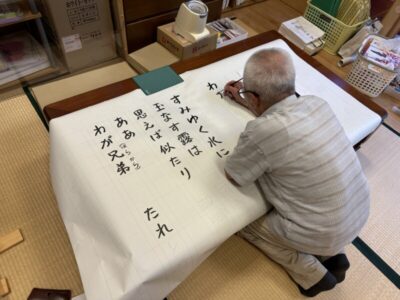 わ
すみゆく水に
玉なす露は
思えば似たり
ああ
わが兄弟
はらから
たれ